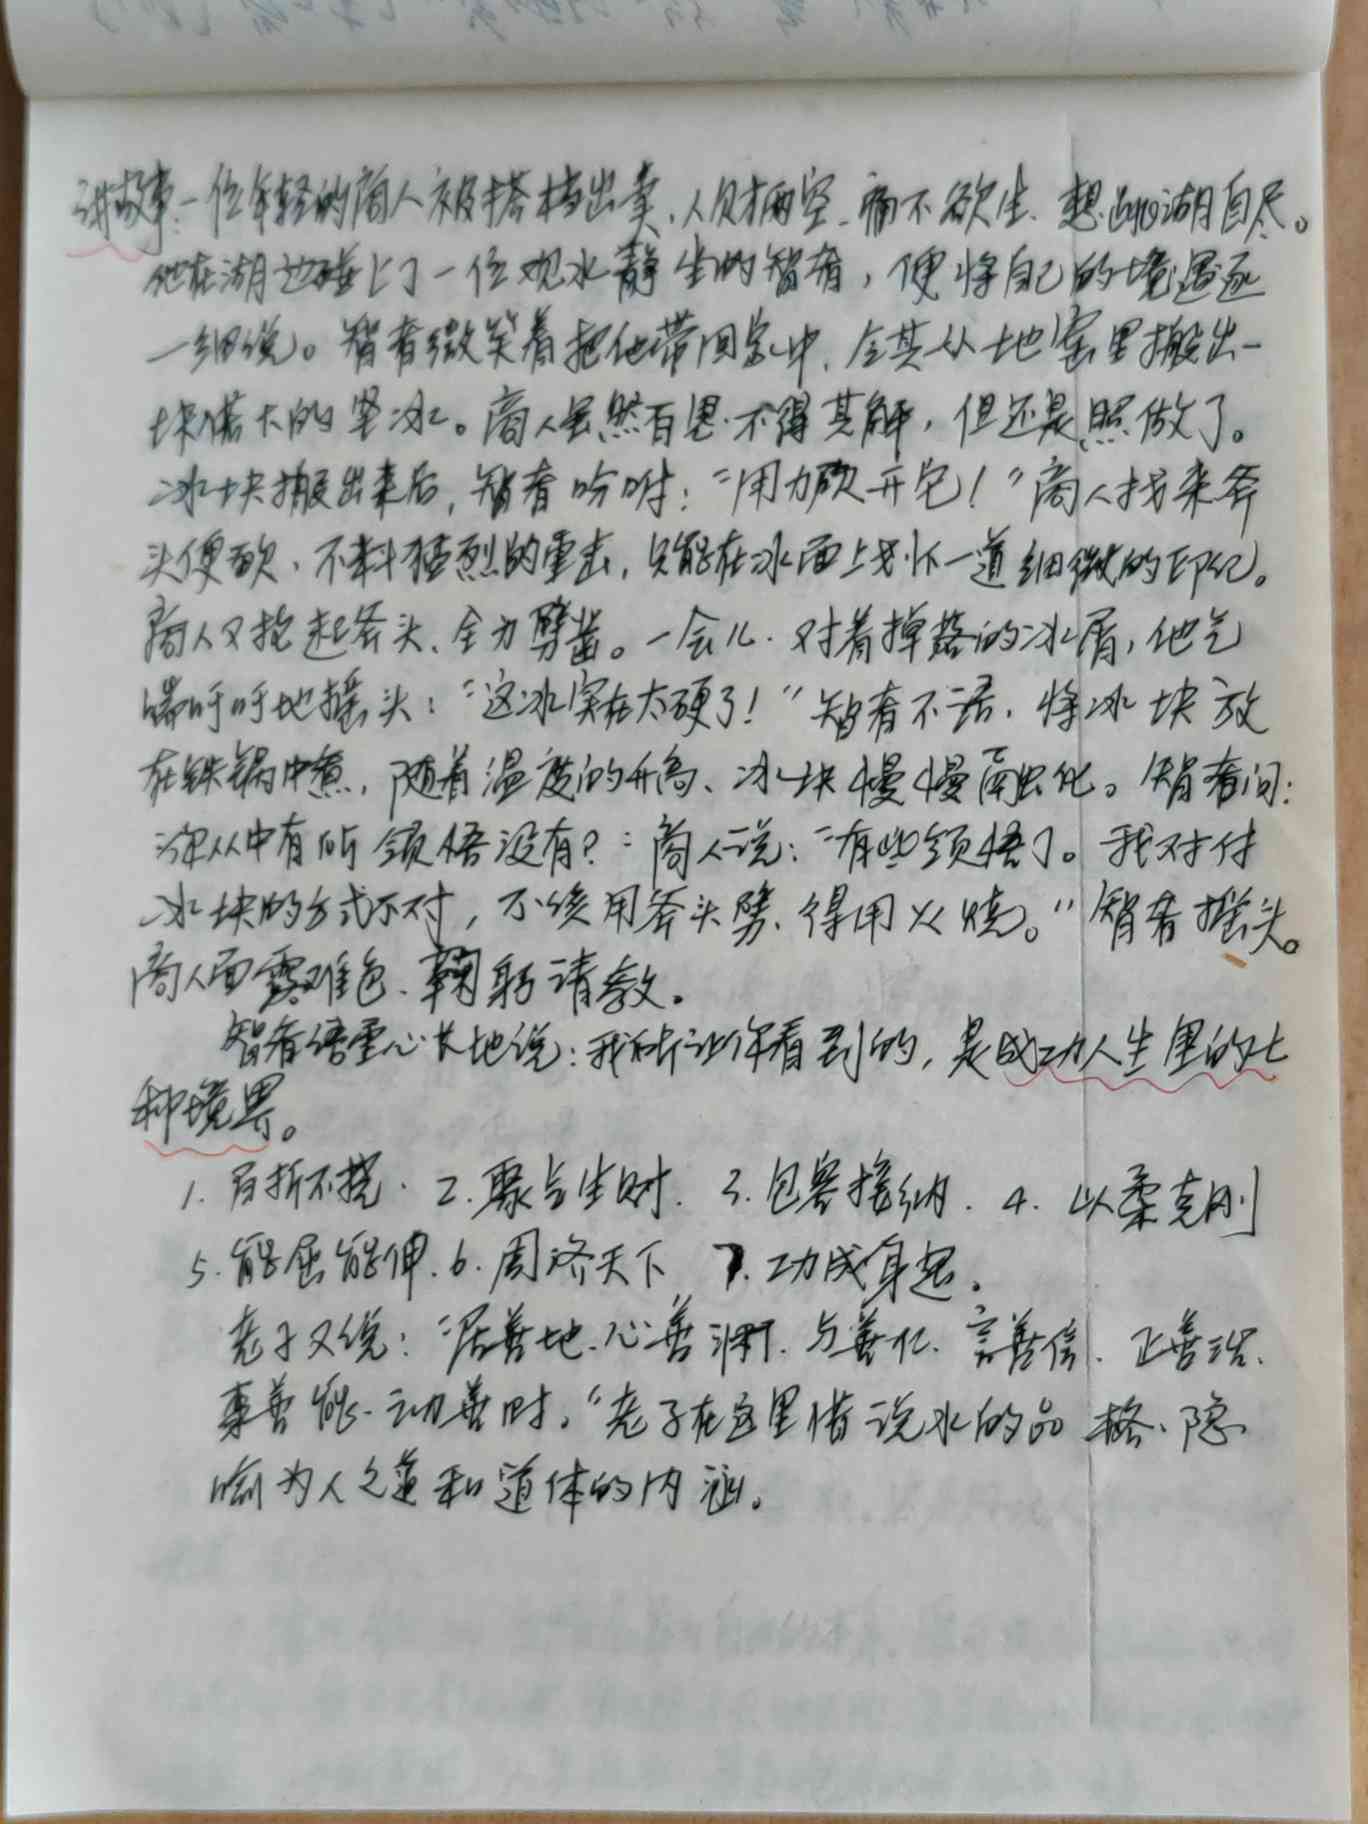 讲故事：一位年轻的商人被搭档出卖，人财两空、痛不欲生、想出心湖自尽。
他在湖边碰上了一位观水静坐的智者，便将自己的境遇逐
一细说。智者微笑着把他带回家中，令其从地窖里搬出一
块偌大的坚冰。商人虽然百思不得其解，但还是照做了。
冰块搬出来后，智者吩咐：“用力砍开它！”商人找来斧
头便砍、不料猛烈的重击，只能在冰面上划下一道细微的印纪。
商人又抡起斧头、全力劈凿。一会儿．对着掉落的冰屑，他气
喘吁吁地摇头：“这冰实在太硬了！”智者不语，将冰块放
在铁锅中煮，随着温度的升高、冰块慢慢融化。智者问：
“你从中有所领悟没有？”商人说：“有些领悟了。我对付
冰块的方式不对，不该用斧头劈、得用火烧。”智者摇头。
商人面露难色、鞠躬请教。
智者语重心长地说：我所让你看到的，是成功人生里的七
种境界。
1. 百折不挠． 2. 聚气生财． 3. 包容接纳． 4. 以柔克刚
5. 能屈能伸．6. 周济天下 7. 功成身退。
老子又说：“居善地、心善渊、与善仁、言善信、正善治、
事善能、动善时。”老子在这里借说水的品格、隐
喻为人之道和道体的内涵。